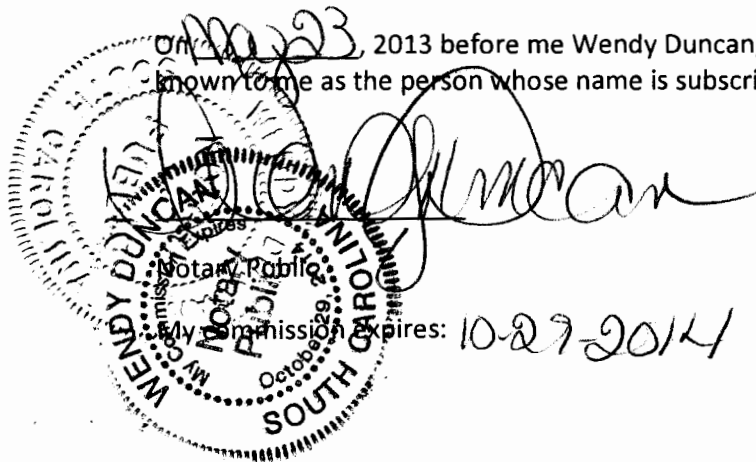 On May 23, 2013 before me Wendy Duncan,
known to me as the person whose name is subscri
Duncan
Notary Public
My commission expires: 10-29-2014
WENDY DUNCAN
SOUTH CAROLINA
My Commission Expires
October 29,
Notary
Public